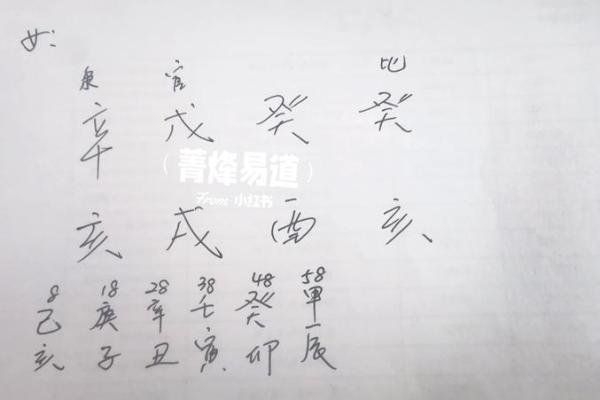 女:
枭 官 比
辛 戊 癸 癸
(菁烽易道)
From 小红书
亥 戌 酉 亥
8 18 28 38 48 58
己 庚 辛 壬 癸 甲
亥 子 丑 寅 卯 辰